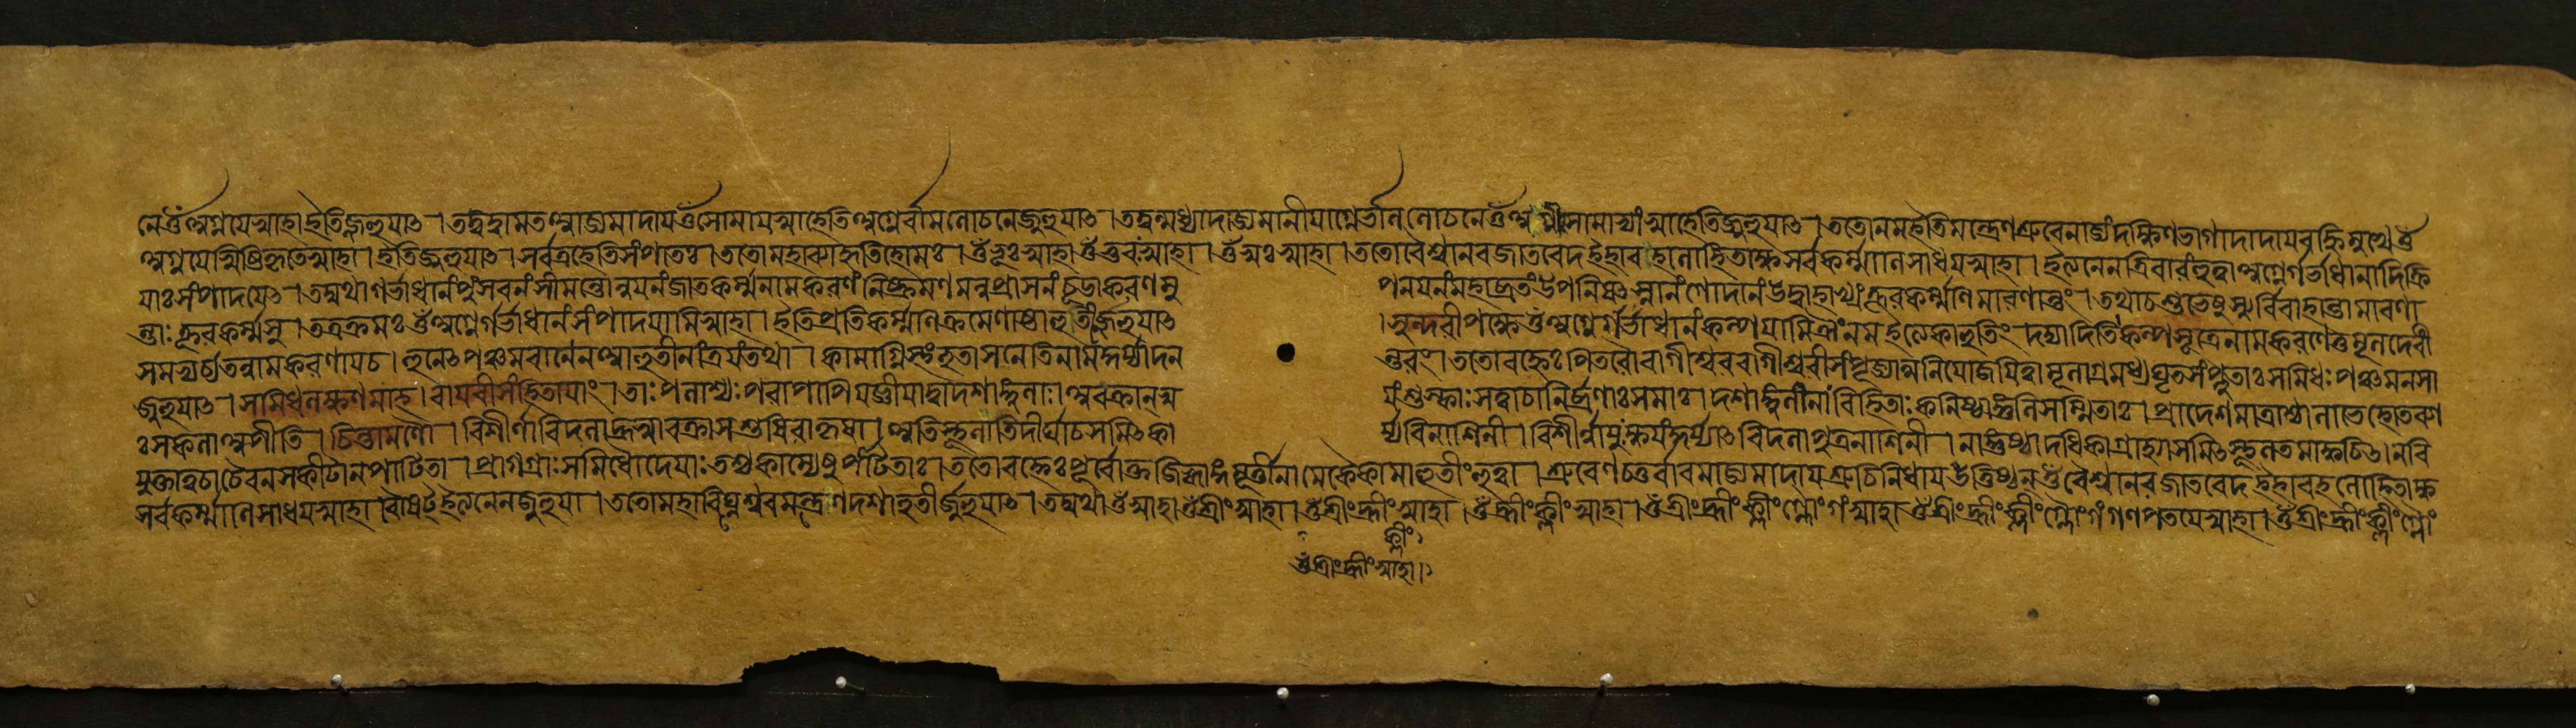 নে ওঁ অগ্নয়ে স্বাহা ইতি জুহুয়াৎ । তদ্বদ্বামত আজ্যমাদায় ওঁ সোমায় স্বাহেতি অগ্নের্বামলোচনে জুহুয়াৎ । তদ্বন্মধ্যাদাজ্যমানীয়াগ্নের্ভাললোচনে ওঁ অগ্নীসোমাভ্যাং স্বাহেতি জুহুয়াৎ । ততো নম ইতি মন্ত্রেণ শ্রুবেনাজ্যং দক্ষিণভাগাদাদায় বহ্নিমুখে ওঁ
অগ্নয়ে স্বিষ্টিকৃতে স্বাহা । ইতি জুহুয়াৎ । সর্বত্র হেতি সংপাতঃ । ততো মহাব্যাহৃতিহোমঃ । ওঁ ভূঃ স্বাহা ওঁ ভুবঃ স্বাহা । ওঁ স্বঃ স্বাহা । ততো বৈশ্বানর জাতবেদ ইহাবহ লোহিতাক্ষ সর্বকর্ম্মাণি সাধয় স্বাহা । ইত্যনেন ত্রিবারং হুত্বা অগ্নের্গর্ভাধানাদিক্রি
য়াঃ সংপাদয়েৎ । তদ্যথা গর্ভাধানং পুংসবনং সীমন্তোন্নয়নং জাতকর্ম্ম নামকরণং নিষ্ক্রমণমন্নপ্রাসনং চূড়াকরণমু পনয়নং মহাব্রতং উপনিষচ্চ স্নানং গোদানং উদ্বাহাখ্যঃ ক্রূরকর্ম্মণি মারণান্তং । তথাচ শুভেষু স্যুর্বিবাহান্তা মারণা
ন্তাঃ ক্রূরকর্ম্মসু । তত্রক্রমঃ ওঁ অগ্নের্গর্ভাধানং সংপাদয়ামি স্বাহা । ইতি প্রতিকর্ম্মণি ক্রমেণাষ্টাহুতীর্জুহুয়াৎ । সুন্দরীপক্ষে ওঁ অগ্নের্গর্ভাধানং কল্পয়ামি নম ইত্যেকাহুতিং দদ্যাদিতি কল্পসূত্রে নামকরণে তু মূলদেবী
সমভ্যর্চ্য তন্নামকরণায় চ । হুনেৎ পঞ্চমবানেন আহুতীনাং ত্রয়ং তথা । কামাগ্নিস্ত্বং হুতাসনেতি নাম ন্তরং । ততো বহ্নেঃ পিতরৌ বাগীশ্বরবাগীশ্বরী সংপূজ্যাত্মনি যোজয়িত্বা মূলাগ্রমধ্যঘৃতসংপ্লুতাঃ সমিধঃ পঞ্চ মনসা
জুহুয়াৎ । সমিধলক্ষণমাহ । বায়বীসংহিতায়াং । তাঃ পলাশ্যঃ পরা পি যজ্ঞীয়া দ্বাদশাঙ্গুলাঃ । অবক্রা ন স্ব য়ং শুষ্কাঃ সত্বচো নির্ব্রণাঃ সমাঃ । দশাঙ্গুলীনাং বিহিতাঃ কনিষ্ঠাঙ্গুলিসম্মিতাঃ । প্রাদেশমাত্রা লাভে হোতব্যা
ঃ সকলা অপীতি । চিন্তামণৌ । বিশীর্ণা বিদলা হ্রস্বা বক্রা সশুষিরা কৃশা । অতিস্থূলাতিদীর্ঘা চ সমিৎ কা র্য্যবিনাশিনী । বিশীর্ণায়ুঃক্ষয়ং কুর্য্যাৎ বিদলা পুত্রনাশিনী । নাঙ্গুষ্ঠাদধিকা গ্রাহ্যা সমিৎ স্থূলতমা ক্বচিৎ । ন বি
মুক্তা ত্বচা চৈব ন সকীটা ন পাটিতা । প্রাগগ্রাঃ সমিধো দেয়াঃ তশ্চ কাম্যেষু পাটিতাঃ । ততো বহ্নেঃ পূর্বোক্তজিহ্বাঙ্গমূর্ত্তীনামেকৈকামাহুতীং হুত্বা । শ্রুবেণ চতুর্বারমাজ্যমাদায় শ্রুচি নিধায় উত্তিষ্ঠন্ ওঁ বৈশ্বানর জাতবেদ ইহাবহ লোহিতাক্ষ
সর্বকর্ম্মাণি সাধয় স্বাহা বৌষট্ ইত্যনেন জুহুয়া । ততো মহাবিঘ্নেশ্বরমন্ত্রেণ দশাহুতীর্জুহুয়াৎ । তদ্যথা ওঁ স্বাহা ওঁ শ্রীং স্বাহা । ওঁ শ্রীং হ্রীং স্বাহা । ওঁ শ্রীং হ্রীং ক্লীং স্বাহা । ওঁ শ্রীং হ্রীং ক্লীং গ্লৌং গং স্বাহা ওঁ শ্রীং হ্রীং ক্লীং গ্লৌং গং গণপতয়ে স্বাহা । ওঁ শ্রীং হ্রীং ক্লীং গ্লৌং
ক্লীং
ওঁ শ্রীং হ্রীং স্বাহা ।